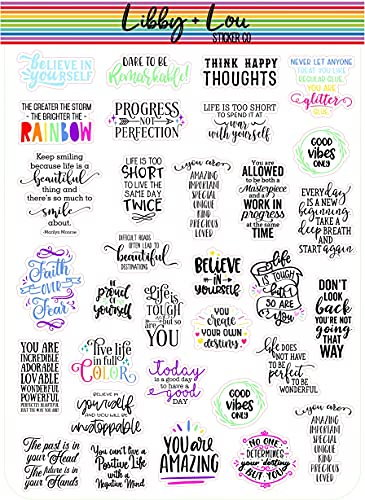 Libby + Lou
STICKER CO
BELIEVE IN
yourself
DARE TO BE
Remarkable!
THINK HAPPY
THOUGHTS
NEVER LET ANYONE
TREAT YOU LIKE
REGULAR GLUE.
YOU ARE
glitter
GLUE.
THE GREATER THE STORM
THE BRIGHTER THE
RAINBOW
PROGRESS
NOT
PERFECTION
LIFE IS TOO SHORT
TO SPEND IT AT
war
with yourself
GOOD
VIBES
ONLY
Keep smiling
because life is a
beautiful
thing and
there's so much to
smile
about.
-Marilyn Monroe
LIFE IS
TOO
SHORT
TO LIVE THE
SAME DAY
TWICE
you are
AMAZING
IMPORTANT
SPECIAL
UNIQUE
KIND
PRECIOUS
LOVED
You are
ALLOWED
to be both a
Masterpiece
and a
WORK IN
progress
at the same
TIME
EVERYDAY
IS A NEW
beginning
TAKE A
DEEP
BREATH
AND
START again
DIFFICULT ROADS
OFTEN LEAD TO
beautiful
DESTINATIONS
Faith
OVER
Fear
be
proud
of
yourself
Life is
TOUGH
but so are
YOU
BELIEVE
IN
YOURSELF
YOU
CREATE
YOUR OWN
DESTINY
life
IS
TOUGH
but
SO ARE
YOU
DON'T
LOOK
BACK
YOU'RE NOT
GOING
THAT
WAY
YOU ARE
INCREDIBLE
ADORABLE
LOVABLE
WONDERFUL
POWERFUL
PERFECTLY IMPERFECT
JUST THE WAY YOU ARE!
live life
in full
COLOR
today
is a good day
to have a
good
DAY
life DOES
NOT HAVE
TO BE
perfect
TO BE
WONDERFUL
BELIEVE IN
yourself
AND YOU
WILL BE
unstoppable
GOOD
VIBES
ONLY
you are
AMAZING
IMPORTANT
SPECIAL
UNIQUE
KIND
PRECIOUS
LOVED
The past is in
your Head
The future is in
your Hands
You can't live a
Positive Life
with a
Negative Mind
YOU are
AMAZING
NO ONE
DETERMINES
your destiny
BUT YOU